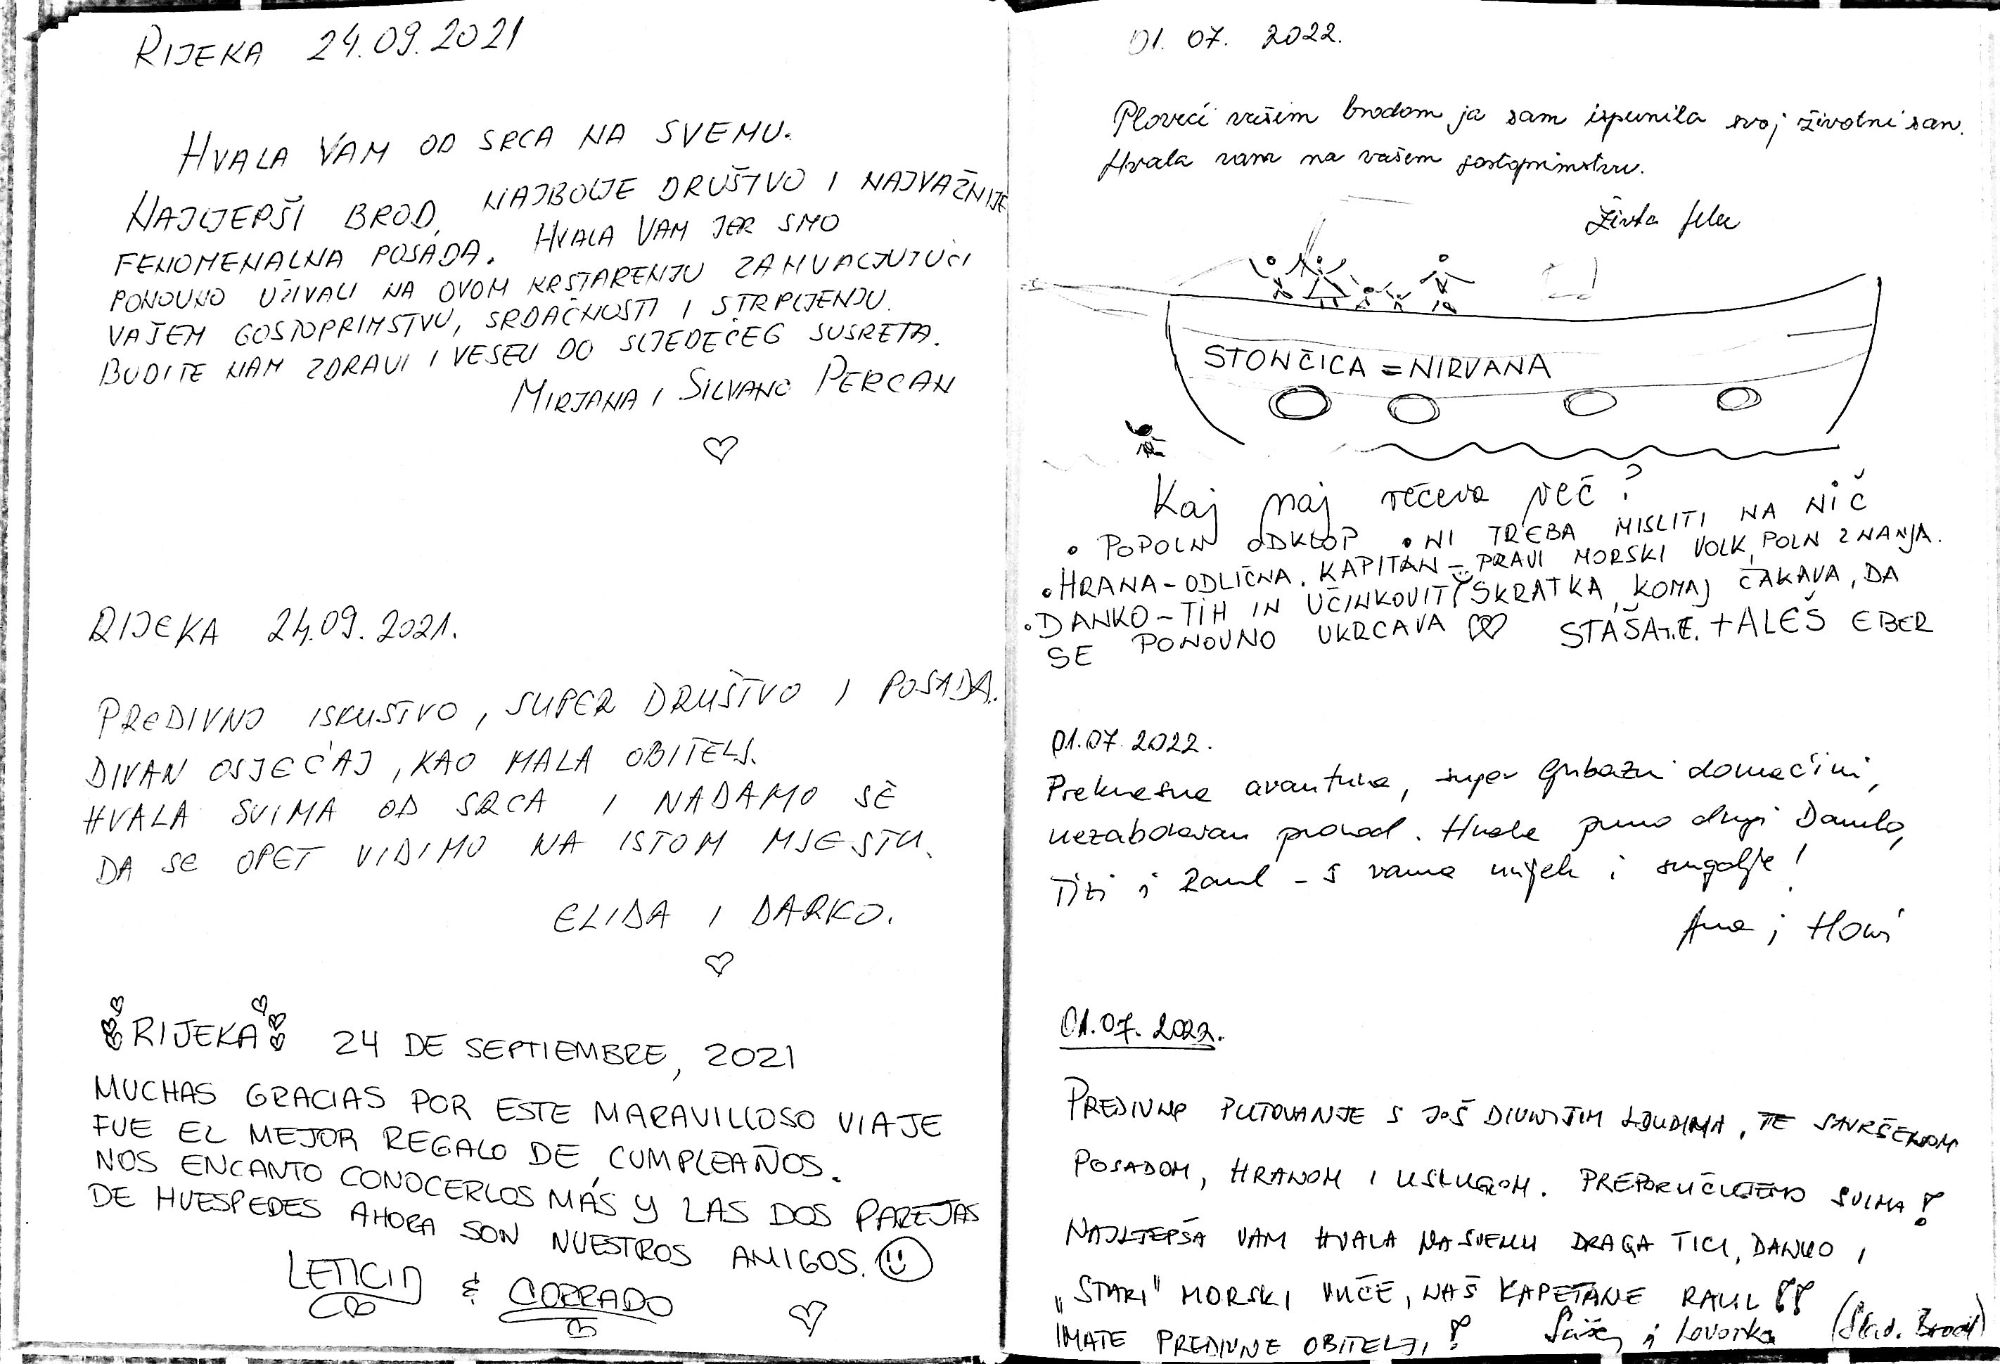 RIJEKA 24.09.2021
HVALA VAM OD SRCA NA SVEMU.
NAJLJEPŠI BROD, NAJBOLJE DRUŠTVO I NAJVAŽNIJE
FENOMENALNA POSADA. HVALA VAM JER SMO
PONOVNO UŽIVALI NA OVOM KRSTARENJU ZAHVALJUJUĆI
VAŠEM GOSTOPRIMSTVU, SRDAČNOSTI I STRPLJENJU.
BUDITE NAM ZDRAVI I VESELI DO SLJEDEĆEG SUSRETA.
MIRJANA I SILVANO PERCAN
RIJEKA 24.09.2021.
PREDIVNO ISKUSTVO, SUPER DRUŠTVO I POSADA.
DIVAN OSJEĆAJ, KAO MALA OBITELJ.
HVALA SVIMA OD SRCA I NADAMO SE
DA SE OPET VIDIMO NA ISTOM MJESTU.
ELIDA I DARKO.
RIJEKA 24 DE SEPTIEMBRE, 2021
MUCHAS GRACIAS POR ESTE MARAVILLOSO VIAJE
FUE EL MEJOR REGALO DE CUMPLEAÑOS.
NOS ENCANTO CONOCERLOS MÁS Y LAS DOS PAREJAS
DE HUESPEDES AHORA SON NUESTROS AMIGOS.
LETICIA & CORRADO
01. 07. 2022.
Ploveći vašim brodom ja sam ispunila svoj životni san.
Hvala vam na vašem gostoprimstvu.
STONČICA = NIRVANA
Kaj naj rečeva več?
• POPOLN ODKLOP • NI TREBA MISLITI NA NIČ
• HRANA - ODLIČNA. KAPITAN - PRAVI MORSKI VOLK, POLN ZNANJA.
• DANKO - TIH IN UČINKOVIT, SKRATKA, KOMAJ ČAKAVA, DA
SE PONOVNO UKRCAVA STAŠA T.E. + ALEŠ EBER
01.07.2022.
Prekrasna avantura, super ljubazni domaćini,
nezaboravan provod. Hvala puno dragi Danko,
Tici i Raul - s vama uvijek i svugdje!
Ana i
01.07.2022.
PREDIVNO PUTOVANJE S JOŠ DIVNIJIM LJUDIMA, TE SAVRŠENOM
POSADOM, HRANOM I USLUGOM. PREPORUČUJEMO SVIMA!
NAJLJEPŠA VAM HVALA NA SVEMU DRAGA TICI, DANKO I
„STARI" MORSKI VUČE, NAŠ KAPETANE RAUL !!
IMATE PREDIVNE OBITELJI! i Lovorka (Slav. Brod)